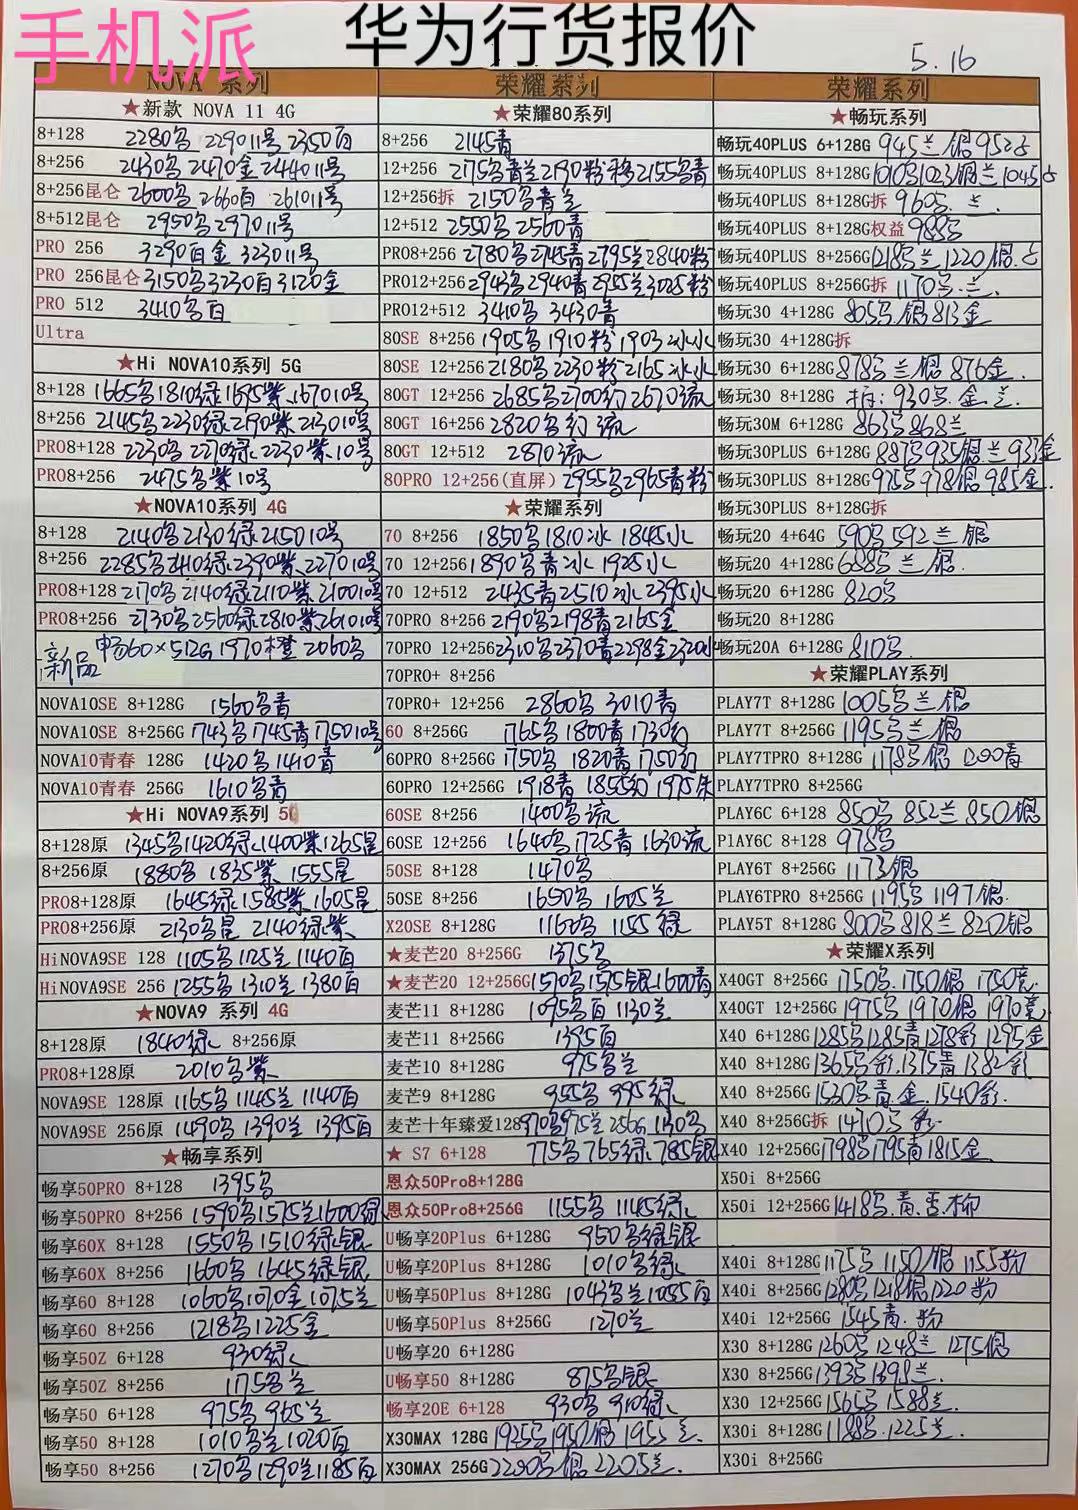 手机派
华为行货报价
5.16
NOVA 系列
★新款 NOVA 11 4G
8+128 2280 2290 11号 2350白
8+256 2430 2470金 2440 11号
8+256昆仑 2600 2660白 2610 11号
8+512昆仑 2950 2970 11号
PRO 256 3290白金 3230 11号
PRO 256昆仑 3150 3230白 3120金
PRO 512 3410 白
Ultra
★Hi NOVA10系列 5G
8+128 1665 1810绿 1695紫 1670 10号
8+256 2145 2230绿 2190紫 2130 10号
PRO8+128 2230 2270绿 2230紫 10号
PRO8+256 2475 紫 10号
★NOVA10系列 4G
8+128 2140 2130绿 2150 10号
8+256 2285 2410绿 2390紫 2270 10号
PRO8+128 2170 2140绿 2110紫 2100 10号
PRO8+256 2730 2560绿 2810紫 2610 10号
新品 畅60X 512G 1970橙 2060
NOVA10SE 8+128G 1560 青
NOVA10SE 8+256G 1743 1745青 1750 10号
NOVA10青春 128G 1420 1410青
NOVA10青春 256G 1610 青
★Hi NOVA9系列 5G
8+128原 1345 1420绿 1400紫 1265星
8+256原 1880 1835紫 1555星
PRO8+128原 1645绿 1585紫 1605星
PRO8+256原 2130 星 2140绿紫
HiNOVA9SE 128 1105 1125兰 1140白
HiNOVA9SE 256 1255 1310兰 1380白
★NOVA9 系列 4G
8+128原 1840绿 8+256原
PRO8+128原 2010 紫
NOVA9SE 128原 1165 1145兰 1140白
NOVA9SE 256原 1490 1390兰 1395白
★畅享系列
畅享50PRO 8+128 1395
畅享50PRO 8+256 1590 1575兰 1600绿
畅享60X 8+128 1550 1510绿银
畅享60X 8+256 1660 1645绿银
畅享60 8+128 1060 1070金 1075兰
畅享60 8+256 1218 1225金
畅享50Z 6+128 930绿
畅享50Z 8+256 1175 兰
畅享50 6+128 975 965兰
畅享50 8+128 1010 兰 1020白
畅享50 8+256 1270 1290兰 1185白
荣耀系列
★荣耀80系列
8+256 2145青
12+256 2175 青兰 2190粉 2155 青
12+256拆 2150 青兰
12+512 2550 2560青
PRO8+256 2780 2745青 2795兰 2840粉
PRO12+256 2943 2940青 2955兰 3025粉
PRO12+512 3410 3430青
80SE 8+256 1905 1910粉 1903冰
80SE 12+256 2180 2230粉 2165冰
80GT 12+256 2685 2700幻 2670流
80GT 16+256 2820 幻流
80GT 12+512 2870流
80PRO 12+256(直屏) 2955 2965青粉
★荣耀系列
70 8+256 1850 1810冰 1845水
70 12+256 1890 青冰 1925水
70 12+512 2435青 2510冰 2395水
70PRO 8+256 2190 2198青 2165金
70PRO 12+256 2310 2370青 2298金 2320
70PRO+ 8+256
70PRO+ 12+256 2860 3010青
60 8+256G 1765 1800青 1730幻
60PRO 8+256G 1750 1820青 1750幻
60PRO 12+256G 1918青 1855幻 1975
60SE 8+256 1400 流
60SE 12+256 1640 1725青 1630流
50SE 8+128 1470
50SE 8+256 1650 1605兰
X20SE 8+128G 1160 1155绿
★麦芒20 8+256G 1375
★麦芒20 12+256G 1570 1575银 1600青
麦芒11 8+128G 1095 白 1130兰
麦芒11 8+256G 1395白
麦芒10 8+128G 975 兰
麦芒9 8+128G 955 995绿
麦芒十年臻爱128 970 975兰 256G 1130
★ S7 6+128 775 765绿 785银
恩众50Pro8+128G
恩众50Pro8+256G 1155 1145绿
U畅享20Plus 6+128G 950 绿银
U畅享20Plus 8+128G 1010 绿
U畅享50Plus 8+128G 1043 兰 1055白
U畅享50Plus 8+256G 1270兰
U畅享20 6+128G
U畅享50 8+128G 875 银
畅享20E 6+128 930 910绿
X30MAX 128G 1925 1950银 1955兰
X30MAX 256G 2200 银 2205兰
荣耀系列
★畅玩系列
畅玩40PLUS 6+128G 945 兰银 952
畅玩40PLUS 8+128G 1010 1023银兰 1045
畅玩40PLUS 8+128G拆 960 兰
畅玩40PLUS 8+128G权益 988
畅玩40PLUS 8+256G 1218 兰 1220银
畅玩40PLUS 8+256G拆 1170 兰
畅玩30 4+128G 805 银 813金
畅玩30 4+128G拆
畅玩30 6+128G 878 兰银 876金
畅玩30 8+128G 拆: 930 金兰
畅玩30M 6+128G 863 868兰
畅玩30PLUS 6+128G 887 935银兰 933金
畅玩30PLUS 8+128G 975 978银 985金
畅玩30PLUS 8+128G拆
畅玩20 4+64G 590 592兰银
畅玩20 4+128G 688 兰银
畅玩20 6+128G 820
畅玩20 8+128G
畅玩20A 6+128G 810
★荣耀PLAY系列
PLAY7T 8+128G 1005 兰银
PLAY7T 8+256G 1195 兰银
PLAY7TPRO 8+128G 1178 银 1200青
PLAY7TPRO 8+256G
PLAY6C 6+128 850 852兰 850银
PlAY6C 8+128 978
PLAY6T 8+256G 1173银
PLAY6TPRO 8+256G 1195 1197银
PLAY5T 8+128G 800 818兰 820银
★荣耀X系列
X40GT 8+256G 1750 1750银 1750竞
X40GT 12+256G 1975 1970银 1970竞
X40 6+128G 1285 1285青 1278彩 1295金
X40 8+128G 1365 彩 1375青 1382彩
X40 8+256G 1530 青金 1540彩
X40 8+256G拆 1470 彩
X40 12+256G 1798 1795青 1815金
X50i 8+256G
X50i 12+256G 1418 青杏柳
X40i 8+128G 1175 1150银 1155粉
X40i 8+256G 1280 1218银 1220粉
X40i 12+256G 1545青 粉
X30 8+128G 1260 1248兰 1275银
X30 8+256G 1393 1398兰
X30 12+256G 1565 1588兰
X30i 8+128G 1188 1225兰
X30i 8+256G